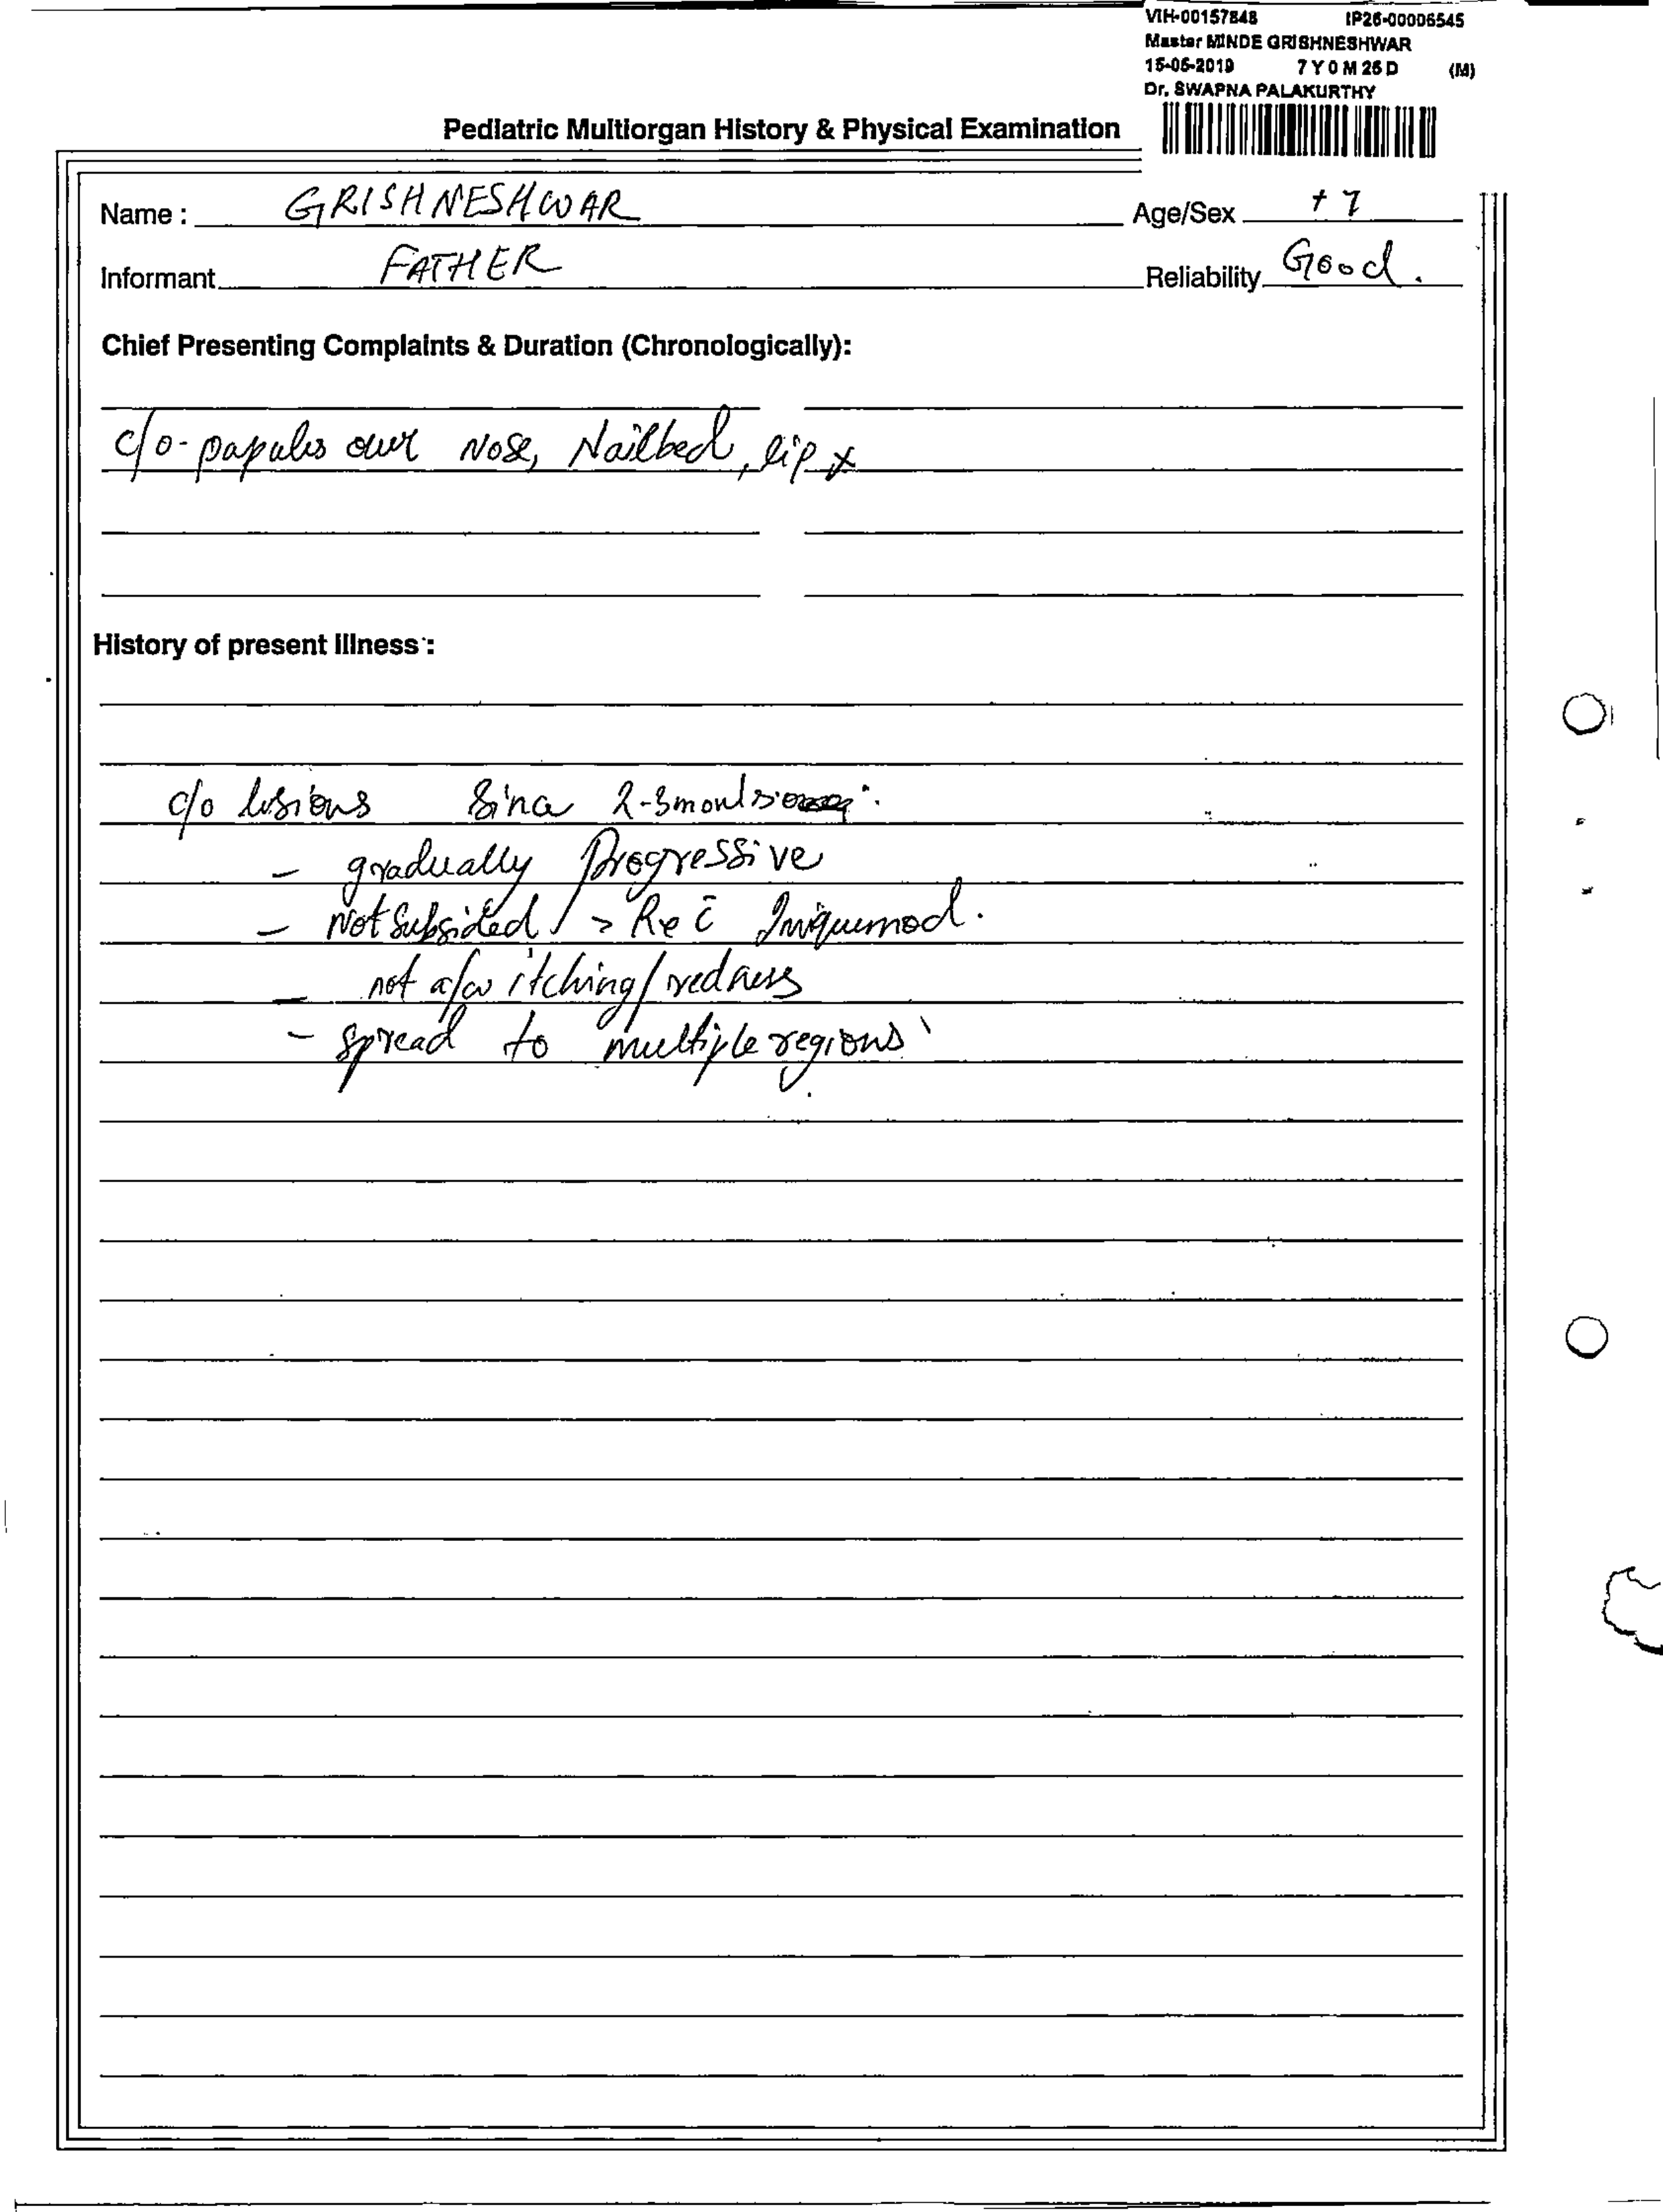 VIH-00157848 IP26-00006545
Master MINDE GRISHNESHWAR
15-05-2019 7 Y 0 M 25 D (M)
Dr. SWAPNA PALAKURTHY
Pediatric Multiorgan History & Physical Examination
Name : GRISHNESHWAR Age/Sex 7
Informant FATHER Reliability Good.
Chief Presenting Complaints & Duration (Chronologically):
c/o - papules over Nose, Nailbed, lip
History of present Illness :
c/o lesions Since 2-3 months
- gradually Progressive
- Not Subsided > Rx c̄ Imiquimod.
- not a/w itching/redness
- spread to multiple regions